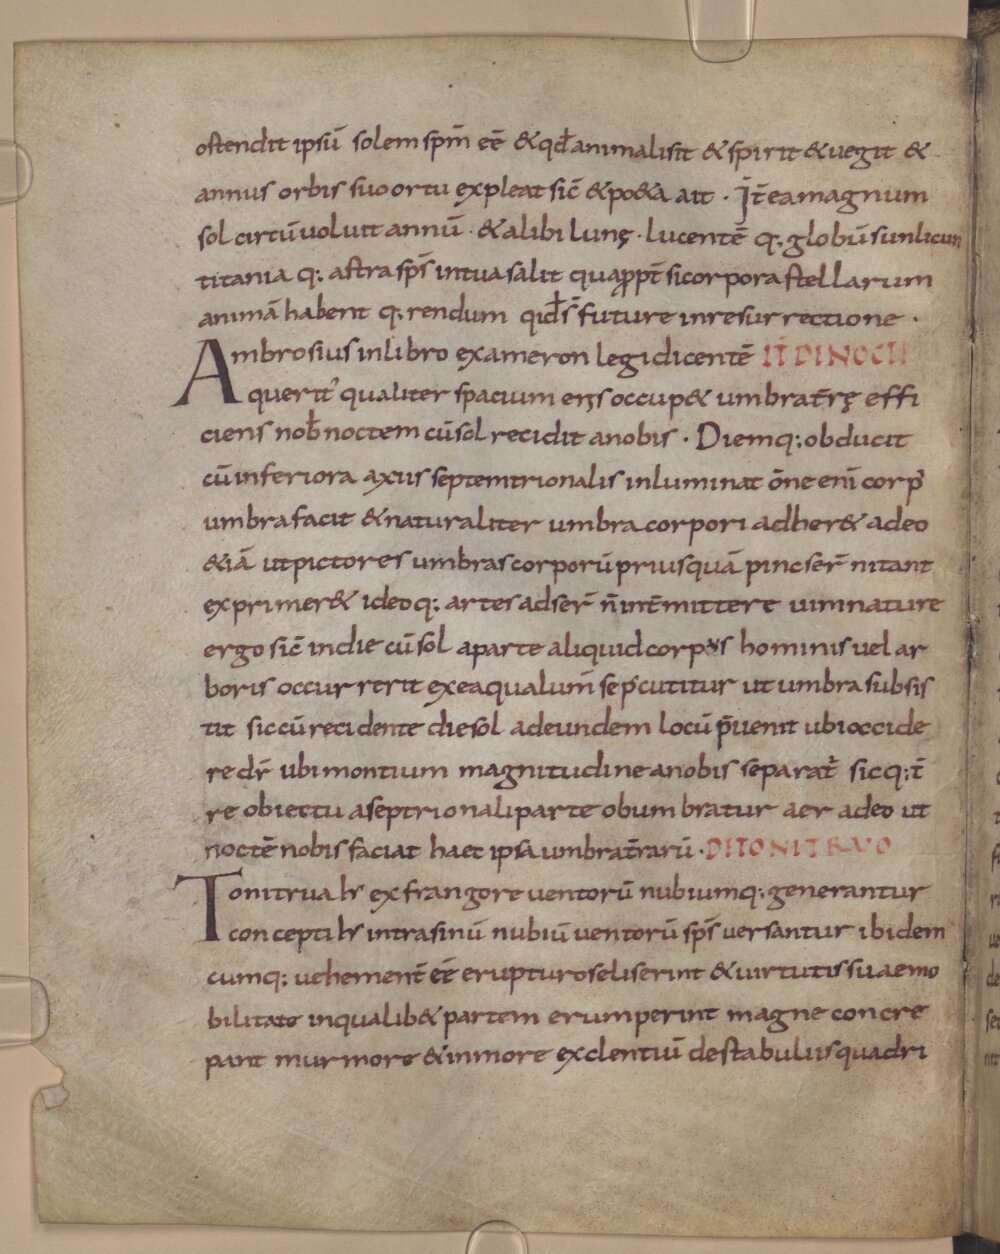 ostendit ipsū solem spm̄ eē &qđ animalisit &spirit &uegit &
annus orbis suo ortu expleat sic̄ &po&a ait · Īt̄ea magnum
sol circū uoluit annū · &alibi lunę · lucentē q; globū sunlicum
titania q; astra sps̄ intuasalit quaꝓpt̄ si corpora stellarum
animā habent q; rendum qid s̄ future in resurrectione ·
Ambrosius in libro exameron legi dicentē IT DI NOCTI
querit᷒ qualiter spacium ens occup& umbrat̄rę effi
ciens nob̄ noctem cū sol recidit anobis · Diemq; obducit
cū inferiora axus septemtrionalis inluminat ōne enī corp᷒
umbra facit &naturaliter umbra corpori adher& adeo
&iā ut pictores umbras corporū priusquā pincser̄ nitant
exprimer& ideoq; artes adser̄ n̄ int̄mittere uim nature
ergo sic̄ in die cū sol aparte aliquid corpus hominis uel ar
boris occurrerit exeaqua lum̄ sep᷒cutitur ut umbra subsis
tit sic cū recidente die sol adeundem locū p̄uenit ubi occide
re dr̄ ubi montium magnitudine anobis separat᷒ sicq; t̄
re obiectu aseptrionali parte obumbratur aer adeo ut
noctē nobis faciat haet ipsa umbrat̄rarū · DI TONITRUO
Tonitrua hr̄ ex frangore uentorū nubiumq; generantur
concepti hr̄ intra sinū nubiū uentorū sps̄ uersantur ibidem
cumq; uehement̄ eē erupturose liserint &uirtutis suae mo
bilitate in qualib& partem erumperint magne concre
pant murmore &inmore exclentiū de stabuluis quadri